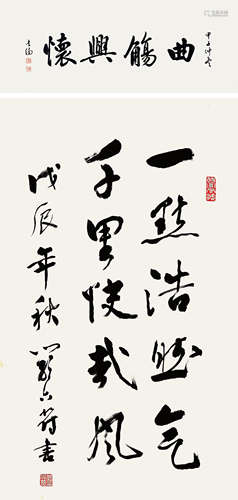 甲子仲冬
曲觴興懷
一點浩然氣
千里快哉風
戊辰年秋 書